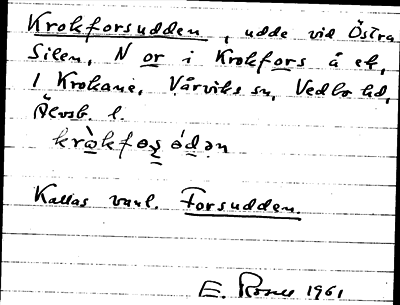 Krokforsudden, udde vid Östra
Silen, N or i Krokfors å ek,
1 Krokane, Vårviks sn, Vedbo hd,
Älvsb. l.
Kallas vanl. Forsudden.
E. 1961